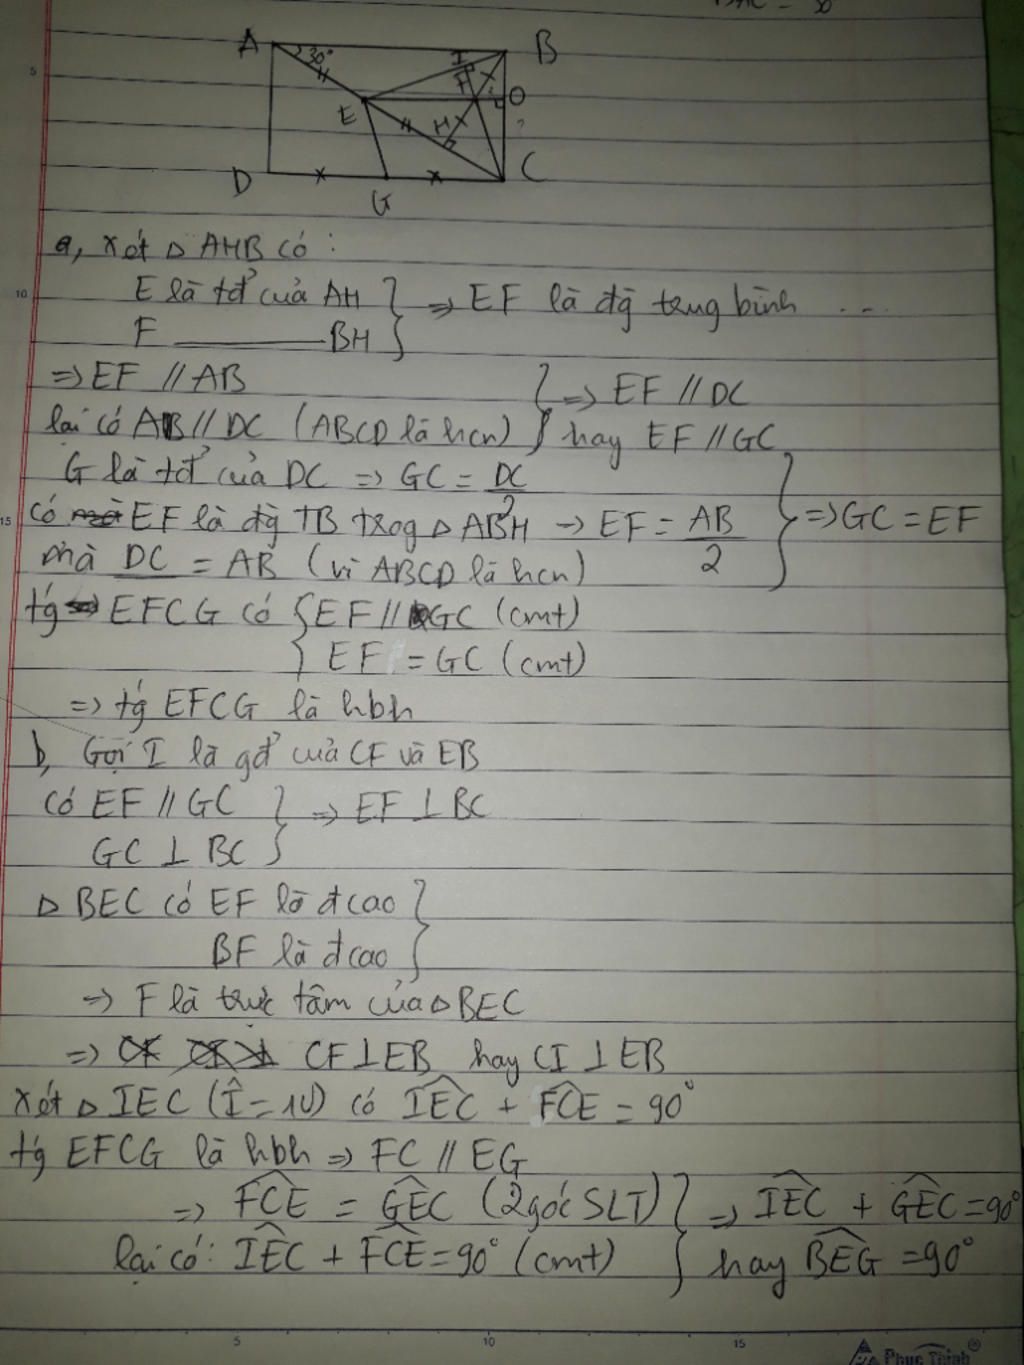 BAC = 30
A
30°
B
I
F
O
E
H
?
D
G
C
5
a, xét △ AHB có :
E là tđ của AH } ⇒ EF là đg trung bình ...
F ———— BH
⇒ EF // AB } ⇒ EF // DC
lại có AB // DC (ABCD là hcn) hay EF // GC
G là tđ của DC ⇒ GC = DC/2
có EF là đg TB trog △ ABH → EF = AB/2 } ⇒ GC = EF
mà DC = AB (vì ABCD là hcn)
tg EFCG có { EF // GC (cmt)
EF = GC (cmt)
⇒ tg EFCG là hbh
b, Gọi I là gđ của CF và EB
có EF // GC } ⇒ EF ⊥ BC
GC ⊥ BC
△ BEC có EF là đcao }
BF là đcao
⇒ F là trực tâm của △ BEC
⇒ CF ⊥ EB hay CI ⊥ EB
xét △ IEC (Î = 1v) có IEC + FCE = 90°
tg EFCG là hbh ⇒ FC // EG
⇒ FCE = GEC (2 góc SLT) } ⇒ IEC + GEC = 90°
lại có: IEC + FCE = 90° (cmt) hay BEG = 90°
10
15
5
10
15
Phuc Thinh